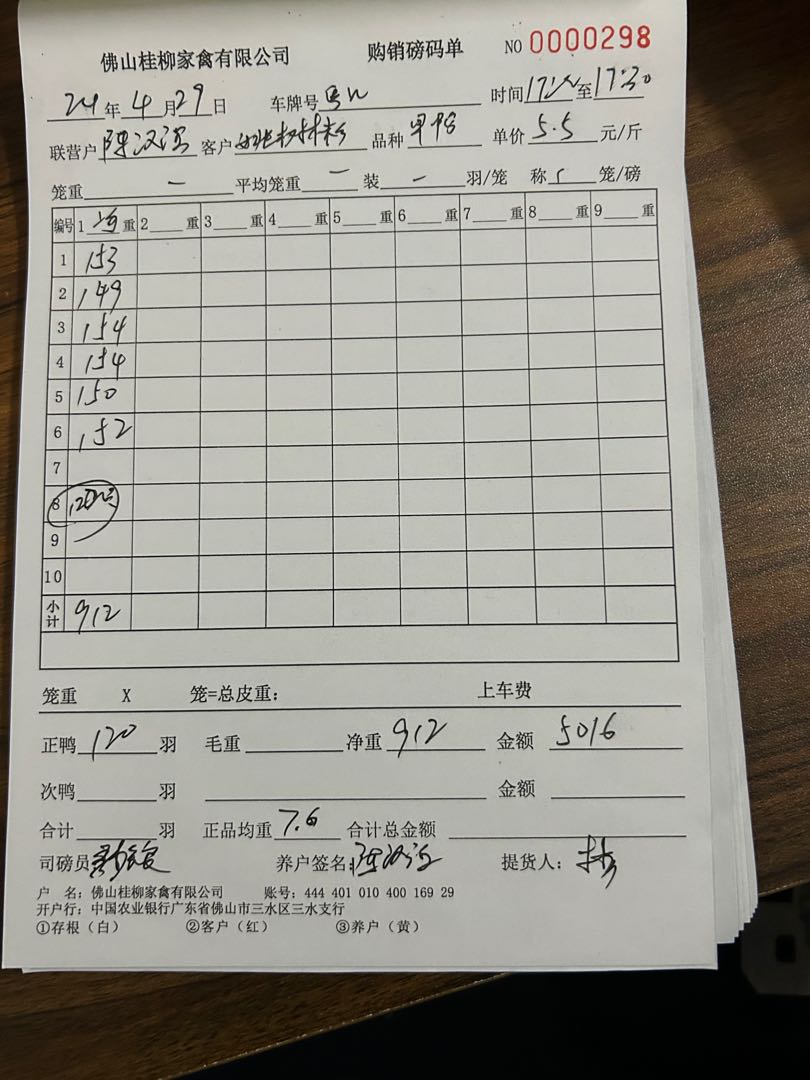 佛山桂柳家禽有限公司 购销磅码单 NO 0000298
24年4月29日 车牌号 时间 至17:30
联营户 客户 品种 单价5.5元/斤
笼重 — 平均笼重 — 装 — 羽/笼 称 笼/磅
编号 1 重 2 重 3 重 4 重 5 重 6 重 7 重 8 重 9 重
1 153
2 149
3 154
4 154
5 150
6 152
7
8
9
10
小计 912
笼重 X 笼=总皮重: 上车费
正鸭120羽 毛重 净重912 金额5016
次鸭 羽 金额
合计 羽 正品均重7.6 合计总金额
司磅员 养户签名: 提货人:
户 名: 佛山桂柳家禽有限公司 账号: 444 401 010 400 169 29
开户行: 中国农业银行广东省佛山市三水区三水支行
①存根(白) ②客户(红) ③养户(黄)